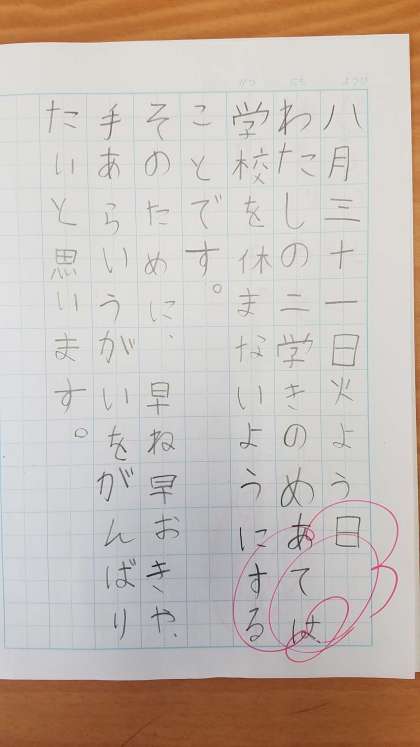 八月三十一日火よう日
わたしの二学きのめあては、
学校を休まないようにする
ことです。
そのために、早ね早おきや、
手あらいうがいをがんばり
たいと思います。